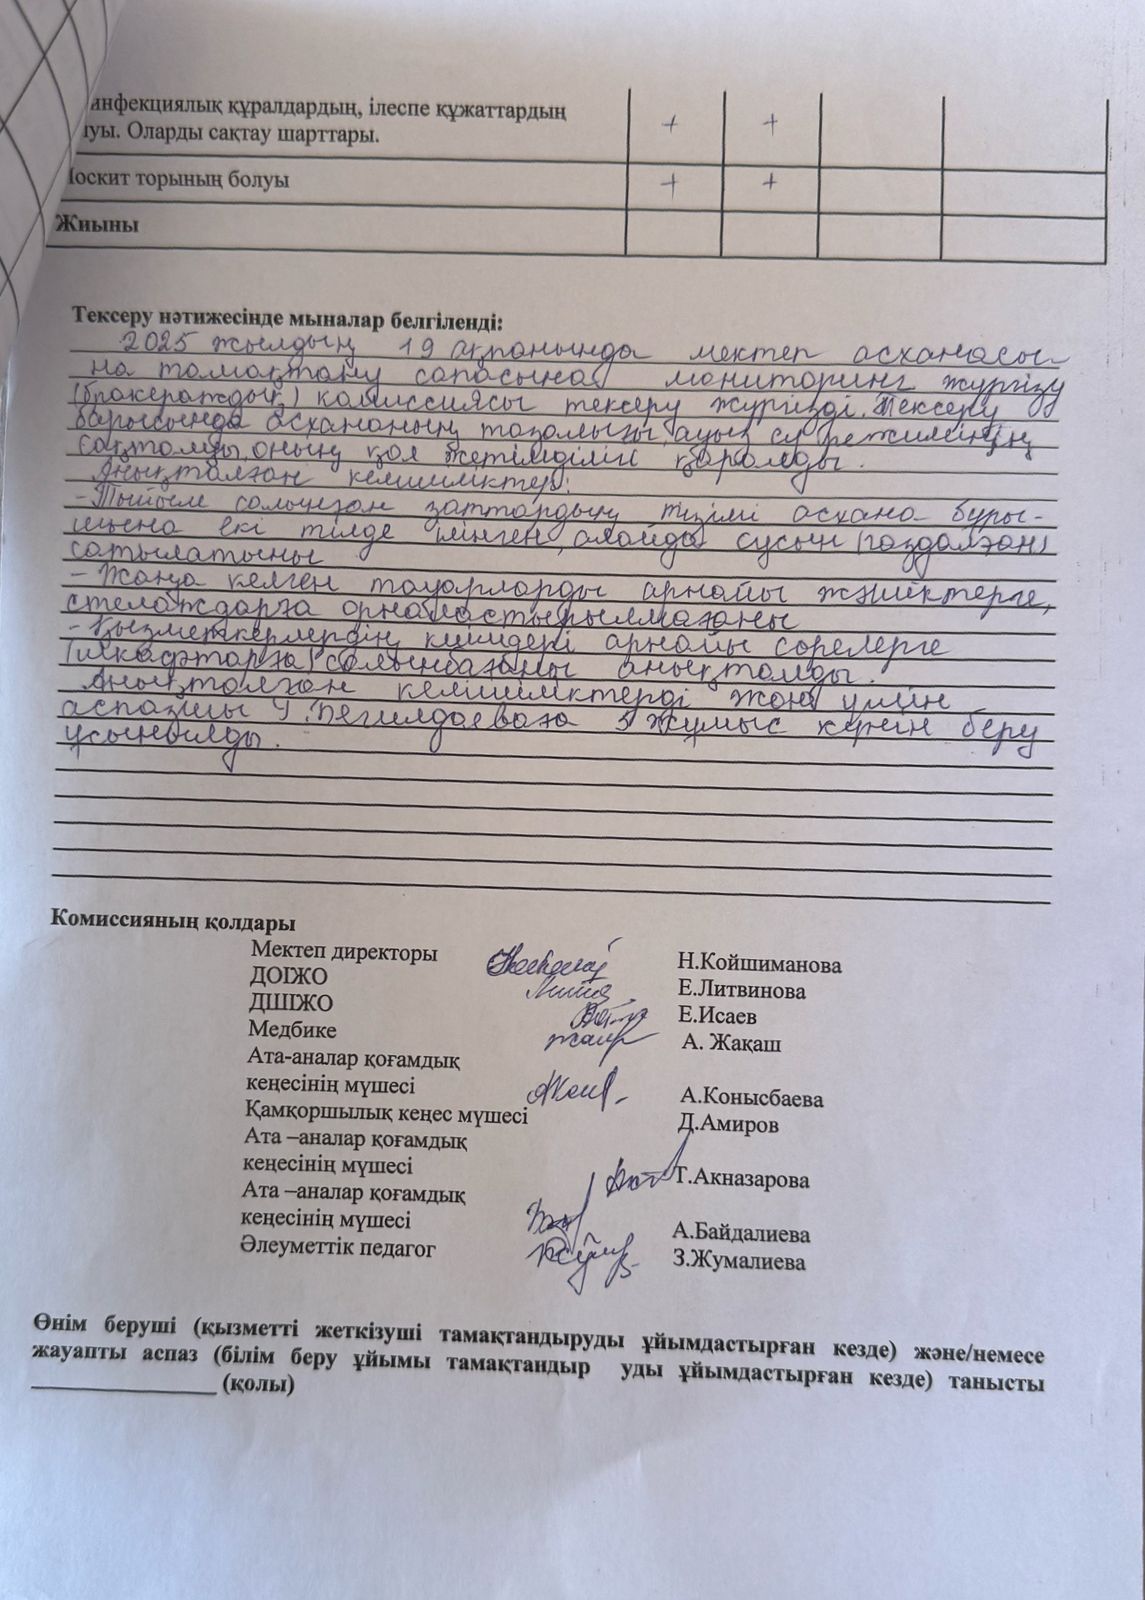 инфекциялық құралдардың, ілеспе құжаттардың + +
луы. Оларды сақтау шарттары.
оскит торының болуы + +
Жиыны
Тексеру нәтижесінде мыналар белгіленді:
2025 жылдың 19 ақпанында мектеп асханасы-
на тамақтану сапасына мониторинг жүргізу
(бракераждық) комиссиясы тексеру жүргізді. Тексеру
барысында асхананың тазалығы, ауыз су режимінің
сақталуы, оның қол жетімділігі қаралды.
Анықталған кемшіліктер:
- Тыйым салынған заттардың тізімі асхана бұры-
шына екі тілде ілінген, алайда сусын (газдалған)
сатылатыны
- Жаңа келген тауарларды арнайы жәшіктерге,
стелаждарға орналастырылмағаны
- Қызметкерлердің киімдері арнайы сөрелерге
(шкафтарға) салынбағаны анықталды.
Анықталған кемшіліктерді жою үшін
аспазшы Ұ. Бегилдаеваға 5 жұмыс күнін беру
ұсынылды.
Комиссияның қолдары
Мектеп директоры Н.Койшиманова
ДОІЖО Е.Литвинова
ДШІЖО Е.Исаев
Медбике А. Жақаш
Ата-аналар қоғамдық
кеңесінің мүшесі А.Конысбаева
Қамқоршылық кеңес мүшесі Д.Амиров
Ата –аналар қоғамдық
кеңесінің мүшесі Т.Акназарова
Ата –аналар қоғамдық
кеңесінің мүшесі А.Байдалиева
Әлеуметтік педагог З.Жумалиева
Өнім беруші (қызметті жеткізуші тамақтандыруды ұйымдастырған кезде) және/немесе
жауапты аспаз (білім беру ұйымы тамақтандыр уды ұйымдастырған кезде) танысты
______________ (қолы)